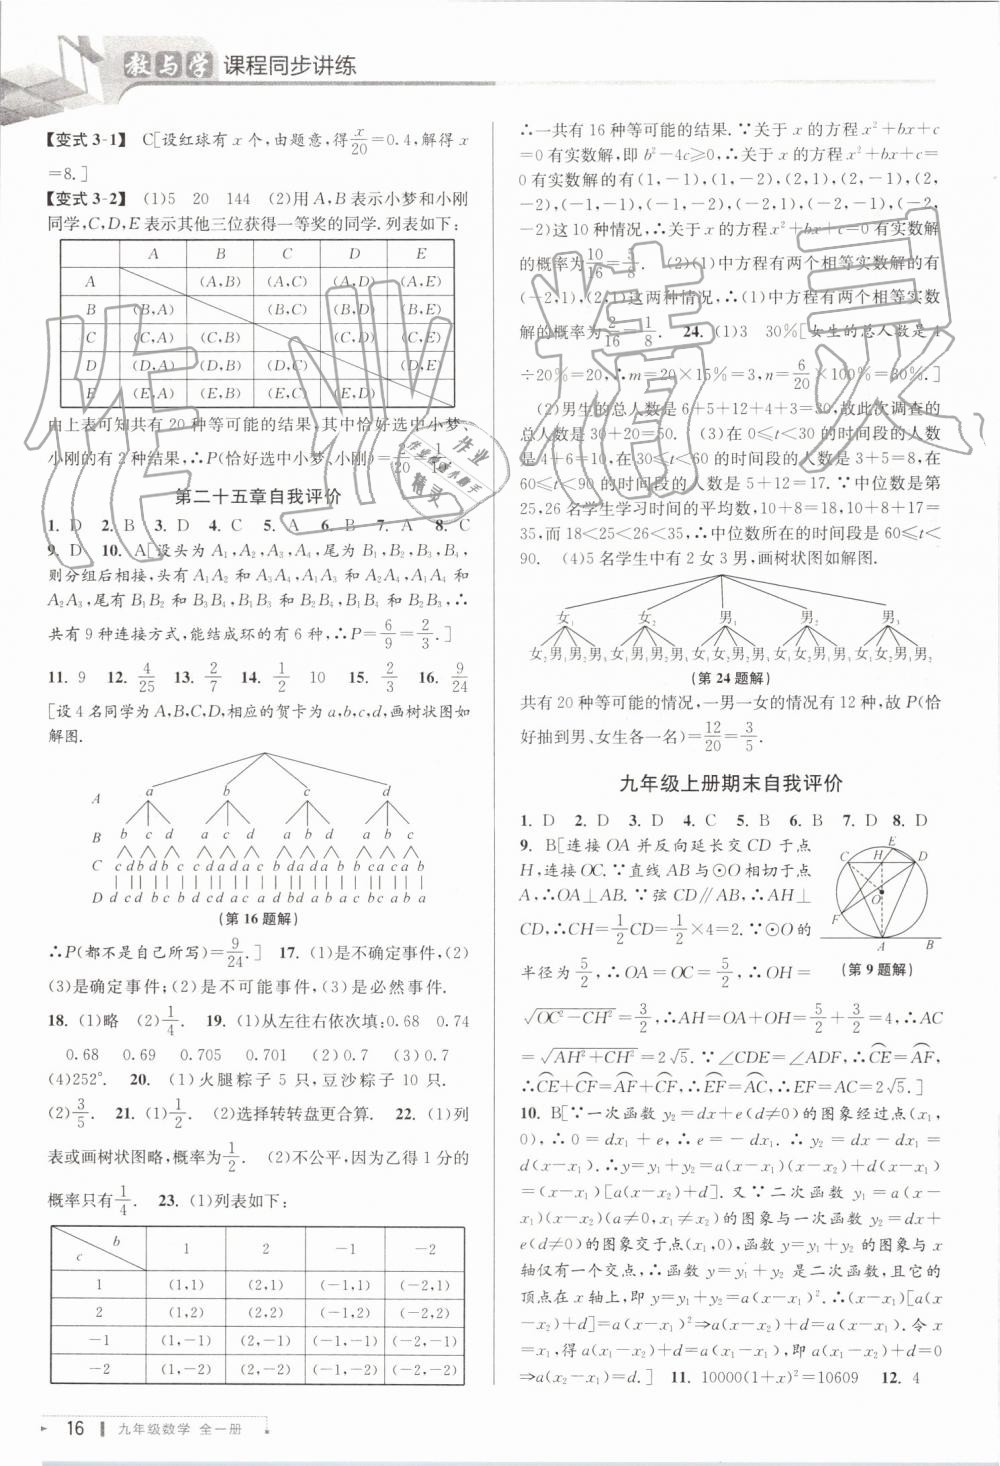 教与学 课程同步讲练
【变式 3-1】 C[设红球有 x 个,由题意,得x/20=0.4,解得 x
=8.]
【变式 3-2】 (1)5 20 144 (2)用 A,B 表示小梦和小刚
同学,C,D,E 表示其他三位获得一等奖的同学.列表如下:
A B C D E
A (A,B) (A,C) (A,D) (A,E)
B (B,A) (B,C) (B,D) (B,E)
C (C,A) (C,B) (C,D) (C,E)
D (D,A) (D,B) (D,C) (D,E)
E (E,A) (E,B) (E,C) (E,D)
由上表可知共有 20 种等可能的结果,其中恰好选中小梦、
小刚的有 2 种结果,∴P(恰好选中小梦、小刚)=2/20=1/10.
第二十五章自我评价
1. D 2. B 3. D 4. C 5. A 6. B 7. A 8. C
9. D 10. A[设头为 A₁,A₂,A₃,A₄,尾为 B₁,B₂,B₃,B₄,
则分组后相接,头有 A₁A₂ 和 A₃A₄,A₁A₃ 和 A₂A₄,A₁A₄ 和
A₂A₃,尾有 B₁B₂ 和 B₃B₄,B₁B₃ 和 B₂B₄,B₁B₄ 和 B₂B₃,∴
共有 9 种连接方式,能结成环的有 6 种,∴P=6/9=2/3.]
11. 9 12. 4/25 13. 2/7 14. 1/2 10 15. 2/3 16. 9/24
[设 4 名同学为 A,B,C,D,相应的贺卡为 a,b,c,d,画树状图如
解图.
A a b c d
B b c d a c d a b d a b c
C c d b d b c c d a d a c b d a d a b b c a c a b
D d c d b c b d c d a c a d b d a b a c b c a b a
(第 16 题解)
∴P(都不是自己所写)=9/24.] 17. (1)是不确定事件,(2)
(3)是确定事件;(2)是不可能事件,(3)是必然事件.
18. (1)略 (2)1/4. 19. (1)从左往右依次填:0.68 0.74
0.68 0.69 0.705 0.701 (2)0.7 (3)0.7
(4)252°. 20. (1)火腿粽子 5 只,豆沙粽子 10 只.
(2)3/5. 21. (1)1/2. (2)选择转转盘更合算. 22. (1)列
表或画树状图略,概率为1/2. (2)不公平,因为乙得 1 分的
概率只有1/4. 23. (1)列表如下:
c b 1 2 -1 -2
1 (1,1) (2,1) (-1,1) (-2,1)
2 (1,2) (2,2) (-1,2) (-2,2)
-1 (1,-1) (2,-1) (-1,-1) (-2,-1)
-2 (1,-2) (2,-2) (-1,-2) (-2,-2)
16 九年级数学 全一册
∴一共有 16 种等可能的结果.∵关于 x 的方程 x²+bx+c
=0 有实数解,即 b²-4c≥0,∴关于 x 的方程 x²+bx+c=
0 有实数解的有(1,-1),(1,-2),(2,1),(2,-1),(2,
-2),(-1,-1),(-1,-2),(-2,1),(-2,-1),(-2,
-2)这 10 种情况,∴关于 x 的方程 x²+bx+c=0 有实数解
的概率为10/16=5/8. (2)(1)中方程有两个相等实数解的有
(-2,1),(2,1)这两种情况,∴(1)中方程有两个相等实数
解的概率为2/16=1/8. 24. (1)3 30%[女生的总人数是 4
÷20%=20,∴m=20×15%=3,n=6/20×100%=30%.]
(2)男生的总人数是 6+5+12+4+3=30,故此次调查的
总人数是 30+20=50. (3)在 0≤t<30 的时间段的人数
是 4+6=10,在 30≤t<60 的时间段的人数是 3+5=8,在
60≤t<90的时间段的人数是 5+12=17.∵中位数是第
25,26 名学生学习时间的平均数,10+8=18,10+8+17=
35,而 18<25<26<35,∴中位数所在的时间段是 60≤t<
90. (4)5 名学生中有 2 女 3 男,画树状图如解图.
女₁ 女₂ 男₁ 男₂ 男₃
女₂男₁男₂男₃ 女₁男₁男₂男₃ 女₁女₂男₂男₃ 女₁女₂男₁男₃ 女₁女₂男₁男₂
(第 24 题解)
共有 20 种等可能的情况,一男一女的情况有 12 种,故 P(恰
好抽到男、女生各一名)=12/20=3/5.
九年级上册期末自我评价
1. D 2. D 3. D 4. C 5. B 6. B 7. D 8. D
9. B[连接 OA 并反向延长交 CD 于点
H,连接 OC.∵直线 AB 与⊙O 相切于点
A,∴OA⊥AB.∵弦 CD∥AB,∴AH⊥
CD,∴CH=1/2CD=1/2×4=2.∵⊙O 的
半径为5/2,∴OA=OC=5/2,∴OH=
E C H D O F A B
(第 9 题解)
√(OC²-CH²)=3/2,∴AH=OA+OH=5/2+3/2=4,∴AC
=√(AH²+CH²)=2√5.∵∠CDE=∠ADF,∴C͡E=A͡F,
∴C͡E+C͡F=A͡F+C͡F,∴E͡F=A͡C,∴EF=AC=2√5.]
10. B[∵一次函数 y₂=dx+e(d≠0)的图象经过点(x₁,
0),∴0=dx₁+e,∴e=-dx₁.∴y₂=dx-dx₁=
d(x-x₁).∴y=y₁+y₂=a(x-x₁)(x-x₂)+d(x-x₁)
=(x-x₁)[a(x-x₂)+d].又∵二次函数 y₁=a(x-
x₁)(x-x₂)(a≠0,x₁≠x₂)的图象与一次函数 y₂=dx+
e(d≠0)的图象交于点(x₁,0),函数 y=y₁+y₂ 的图象与 x
轴仅有一个交点,∴函数 y=y₁+y₂ 是二次函数,且它的
顶点在 x 轴上,即 y=y₁+y₂=a(x-x₁)².∴(x-x₁)[a(x
-x₂)+d]=a(x-x₁)²⇒a(x-x₂)+d=a(x-x₁).令 x
=x₁,得 a(x₁-x₂)+d=a(x₁-x₁),即 a(x₁-x₂)+d=0
⇒a(x₂-x₁)=d.] 11. 10000(1+x)²=10609 12. 4
作业精灵